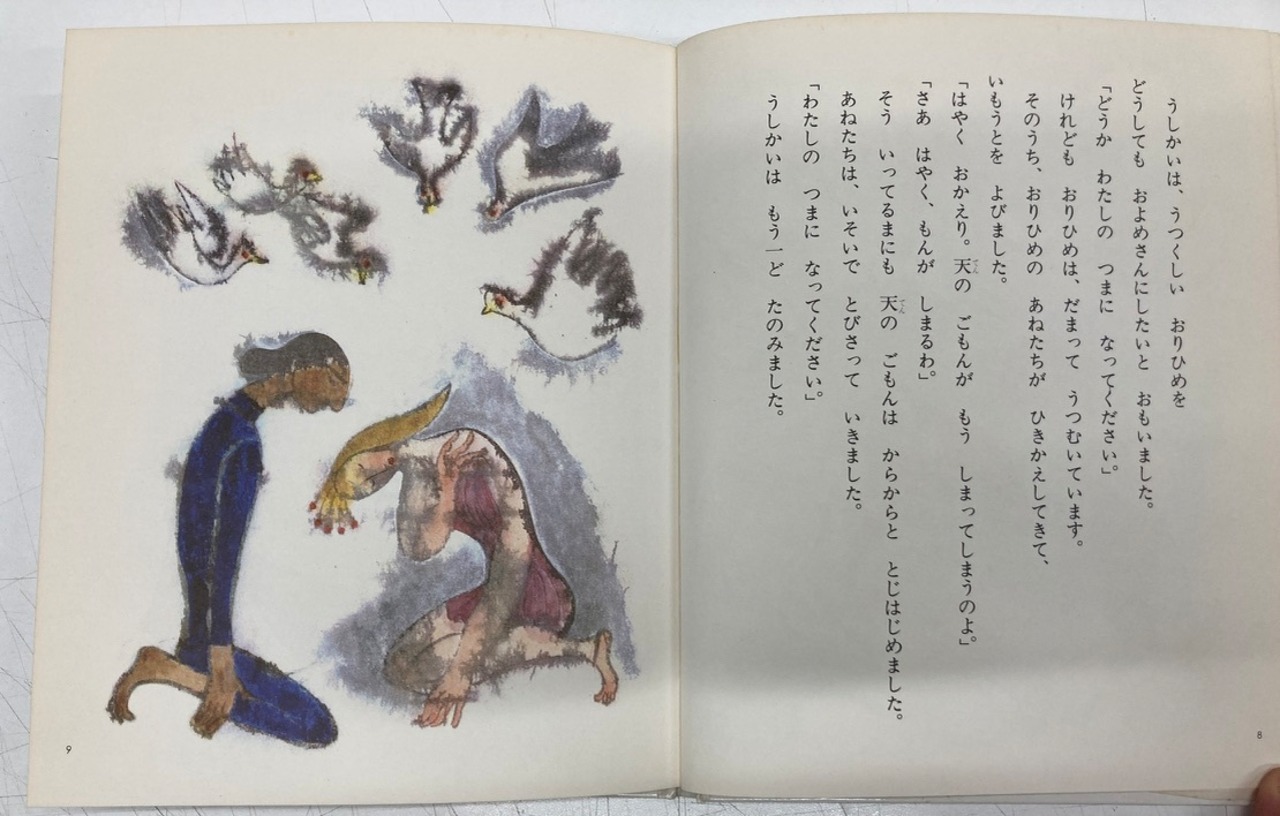 うしかいは、うつくしい おりひめを
どうしても およめさんにしたいと おもいました。
「どうか わたしの つまに なってください。」
けれども おりひめは、だまって うつむいています。
そのうち、おりひめの あねたちが ひきかえしてきて、
いもうとを よびました。
「はやく おかえり。天の ごもんが もう しまってしまうのよ。」
「さあ はやく、もんが しまるわ。」
そう いってるまにも 天の ごもんは からからと とじはじめました。
あねたちは、いそいで とびさって いきました。
「わたしの つまに なってください。」
うしかいは もう一ど たのみました。
8
9